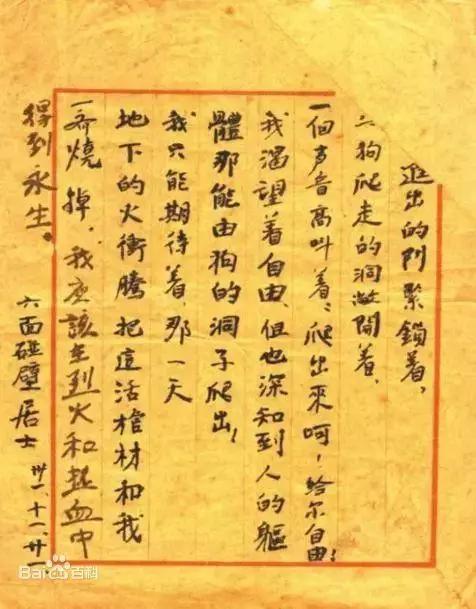 進出的門緊鎖着,
狗爬走的洞敞開着,
一個声音高叫着:爬出來呵!給尔自由!
我渴望着自由,但也深知到人的軀
體那能由狗的洞子爬出!
我只能期待着,那一天
地下的火衝騰把這活棺材和我
一齊燒掉,我应該在烈火和热血中
得到永生。
六面碰壁居士 卅一、十一、廿一.
Bai度百科